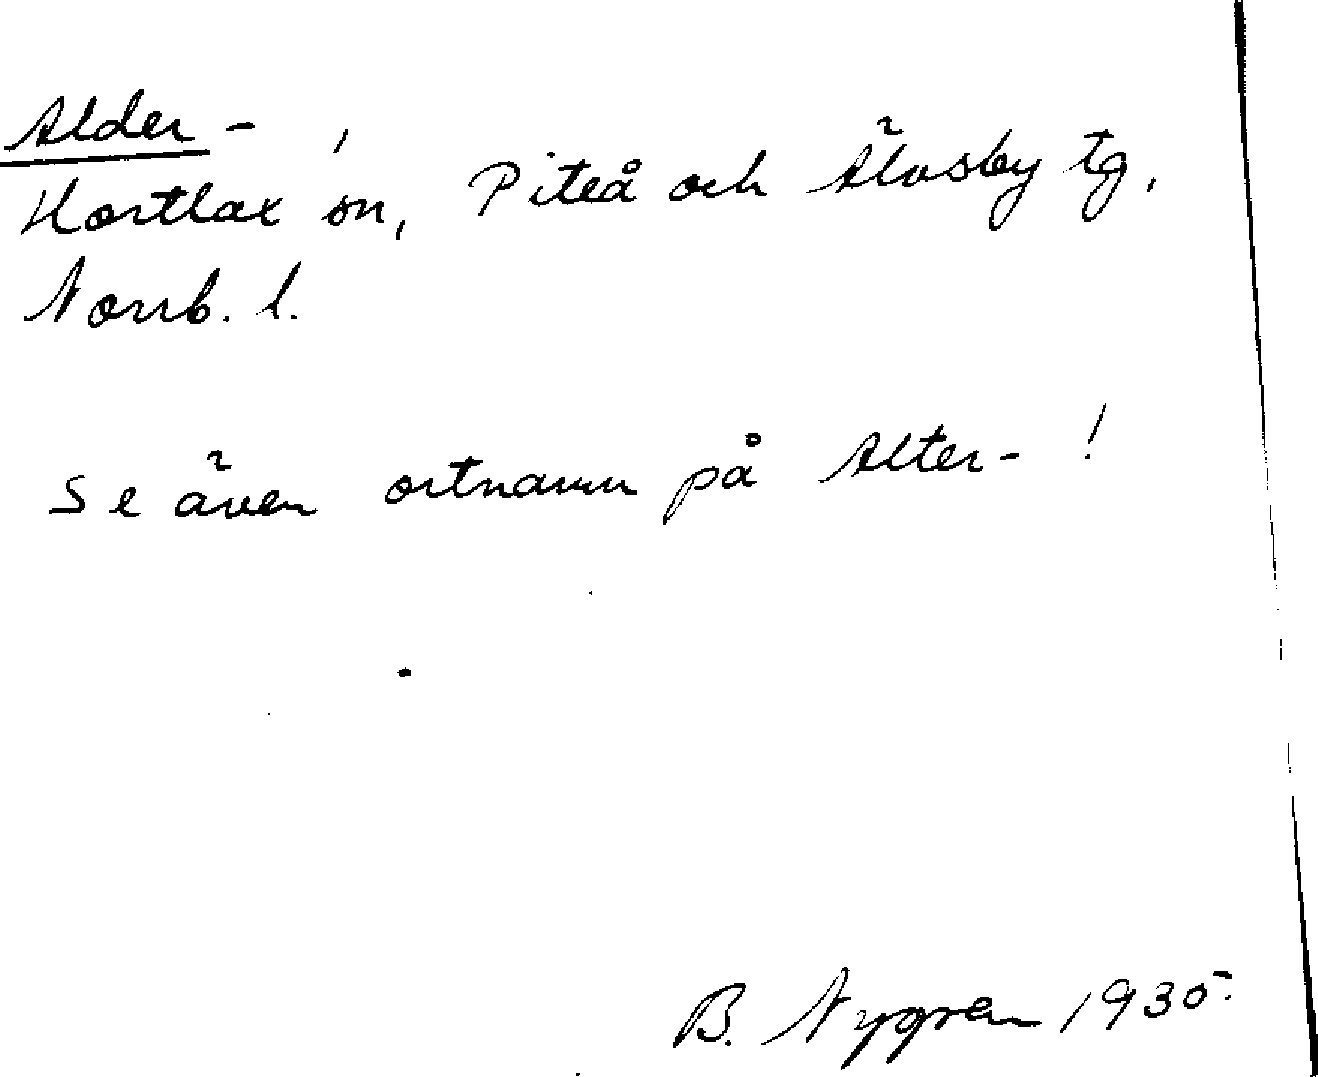 Alder- ,
Hortlax sn, Piteå och Älvsby tg,
Norrb. l.
Se även ortnamn på Alter- !
B. Nygren 1935.